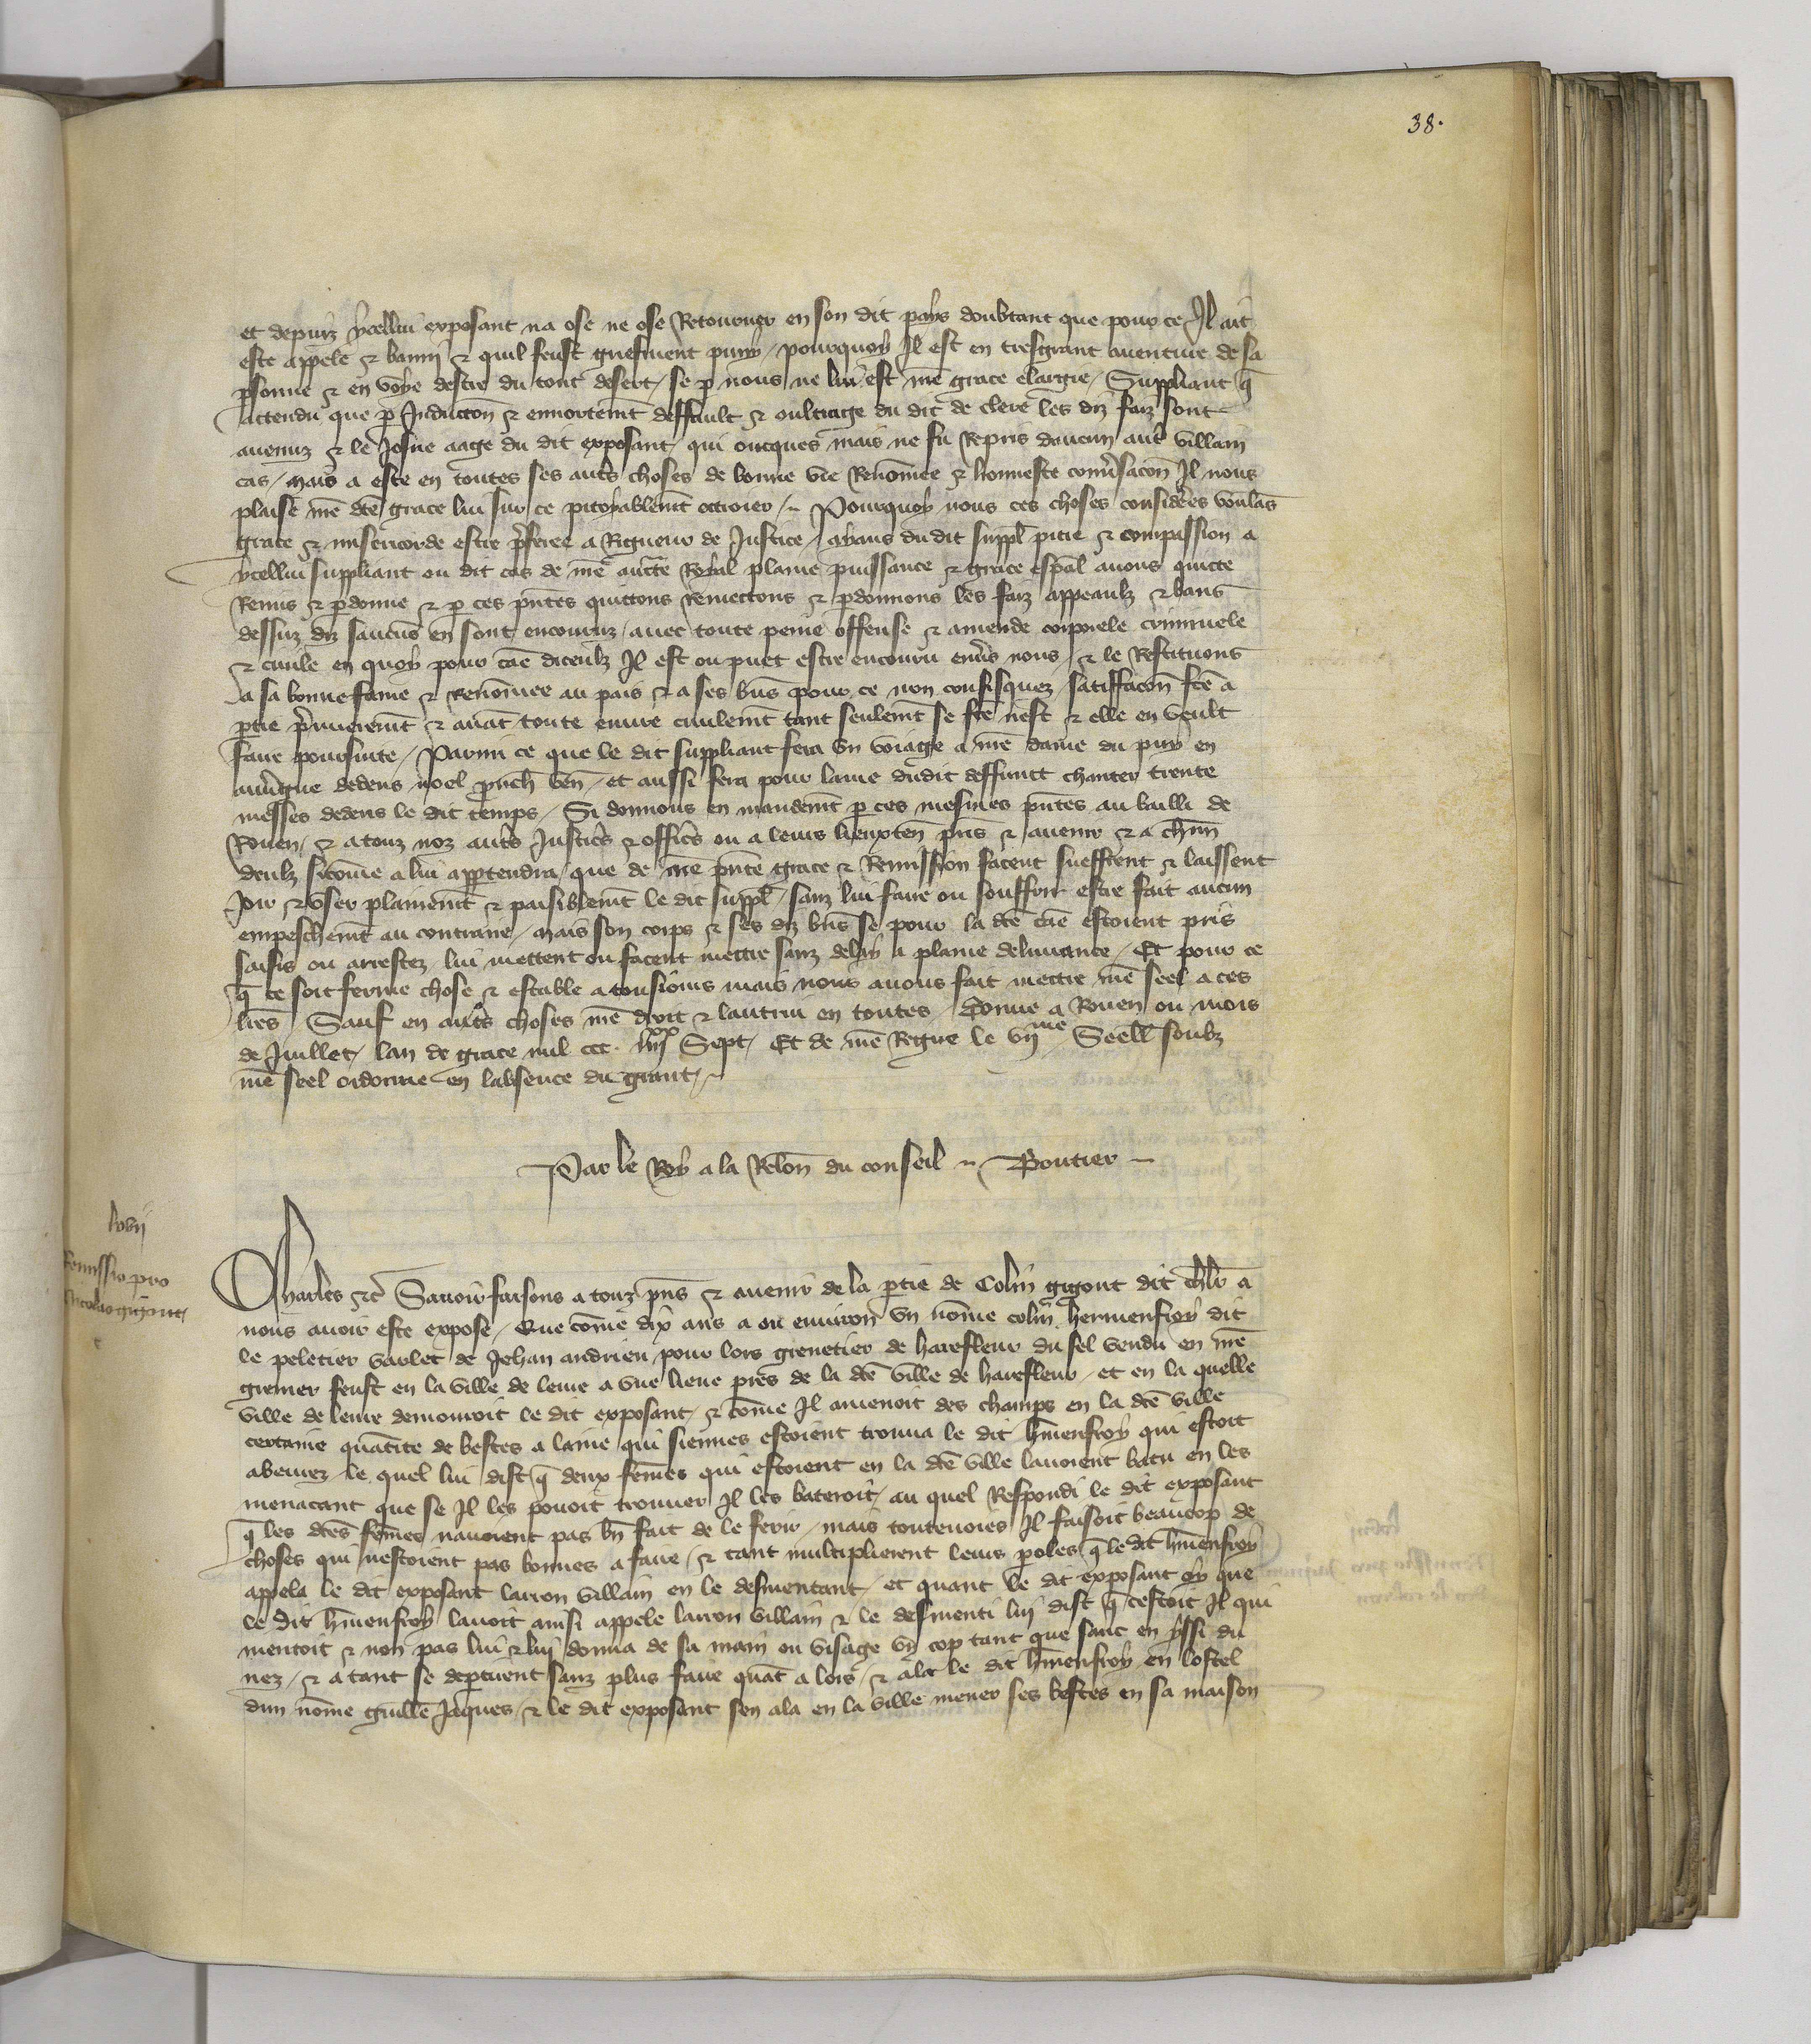 38.
et depuiz ycellui exposant na ose ne ose Retourner en son dit pays doubtant que pour ce Il ait
este appele & banny & quil feust griefment puny / pourquoy Il est en tresgrant auenture de sa
psonne & en voye destre du tout desert / se p nous ne lui est nr̄e grace elargie / Suppliant q̄
actendu que p Induccōn & ennortemēt deffault & oultrage du dit de clere les diz faiz sont
auenuz & le Josne aage du dit exposant / qui oncques mais ne fu Repris daucun autr̄ villain
cas / mais a este en toutes ses autr̄s choses de bonne vie Renōmee & honneste conu̓sacōn Il nous
plaise nr̄e dc̄e grace lui sur ce pitoyablemēt octroier / Pourquoy nous ces choses considere̓s voulās
grace & misericorde estre p̄feree a Rigueur de Justice / ayans du dit suppl̄ pitie & compassion a
ycellui suppliant ou dit cas de nr̄e auct̄e Royal plaine puissance & grace esp̄al auons quicte
Remis & pdonne & p ces pn̄tes quittons Remectons & pdonnons les faiz appeaulx & bans
dessuz diz saucūs en sont encouruz / auec toute peine offense & amende corporele criminele
& ciuile en quoy pour cāe diceulx Il est ou puet estre encouru enu̓s nous / & le Restituons
a sa bonne fame & Renōmee au pais & a ses bn̄s pour ce non confisquez / satiffacōn fc̄e a
ptie p̄muieremēt & auāt toute euure ciuilemēt tant seulemēt se fc̄e nest & elle en veult
faire poursuite / Parmi ce que le dit suppliant fera vn voiage a nr̄e dame du puy en
auu̓gne dedens noel pruch̄ ven̄ / et aussi fera pour lame dudit deffunct chanter trente
messes dedens le dit temps / Si donnons en mandemēt p ces mesmes pn̄tes au bailli de
Rouen / & a touz noz autr̄s Justic̓s & offic̓s ou a leurs lieuxten̄ pn̄s & auenir & a chūn
deulx sicōme a lui appertendra / que de nr̄e pn̄te grace & Remission facent sueffrent & laissent
Joir & vser plainemēt & paisiblemēt le dit suppl̄ / sanz lui faire ou souffrir estre fait aucun
empeschemēt au contraire / mais son corps & ses diz bn̄s se pour la dc̄e cāe estoient pris
saisis ou arrestez / lui mettent ou facent mettre sanz delay a plaine deliurance / Et pour ce
q̄ ce soit ferme chose & estable a tousiours mais nous auons fait mettre nr̄e seel a ces
lr̄es / Sauf en autr̄s choses nr̄e droit & lautrui en toutes / Donne a Rouen ou mois
de Juillet / lan de grace mil ccc. iiiixx Sept / Et de nr̄e Regne le vijme Seell̄ soubz
nr̄e seel ordonne en labsence du grant /
Par le Roy a la Relōn du conseil Poutier
lxvij
Remissio pro
Nicolao gigout
Charles &c̄ Sauoir faisons a touz pn̄s & auenir de la ptie de Colin gigout dit chlr̄ a
nous auoir este expose / Que cōme dix ans a ou enuiron vn nōme colin hermenfroy dit
le peletier varlet de Jehan andrieu pour lors grenetier de harefleur du sel vendu en nr̄e
grenier feust en la ville de leure a vne lieue pres de la dc̄e ville de harefleur / et en la quelle
ville de leure demouroit le dit exposant / & cōme Il amenoit des champs en la dc̄e ville
certaine quātite de bestes a laine qui siennes estoient trouua le dit hm̄enfroy qui estoit
abeurez / le quel lui dist q̄ deux fēmes qui estoient en la dc̄e ville lauoient batu en les
menacant que se Il les pouoit trouuer Il les bateroit / au quel Respondi le dit exposant
q̄ les dc̄es fēmes nauoient pas bn̄ fait de le ferir / mais touteuoies Il faisoit beaucop de
choses qui nestoient pas bonnes a faire / & tant multiplierent leurs poles q̄ le dit hm̄enfroy
appela le dit exposant larron villain en le desmentant / et quant le dit exposant oy que
le dit hm̄enfroy lauoit ainsi appele larron villain & le desmenti lui dist q̄ cestoit Il qui
mentoit & non pas lui & lui donna de sa main ou visage vn cop tant que sanc en yssi du
nez / & a tant se deptirent sanz plus faire quāt a lors / & ala le dit hm̄enfroy en lostel
dun nōme guille Jaques / & le dit exposant sen ala en la ville mener ses bestes en sa maison